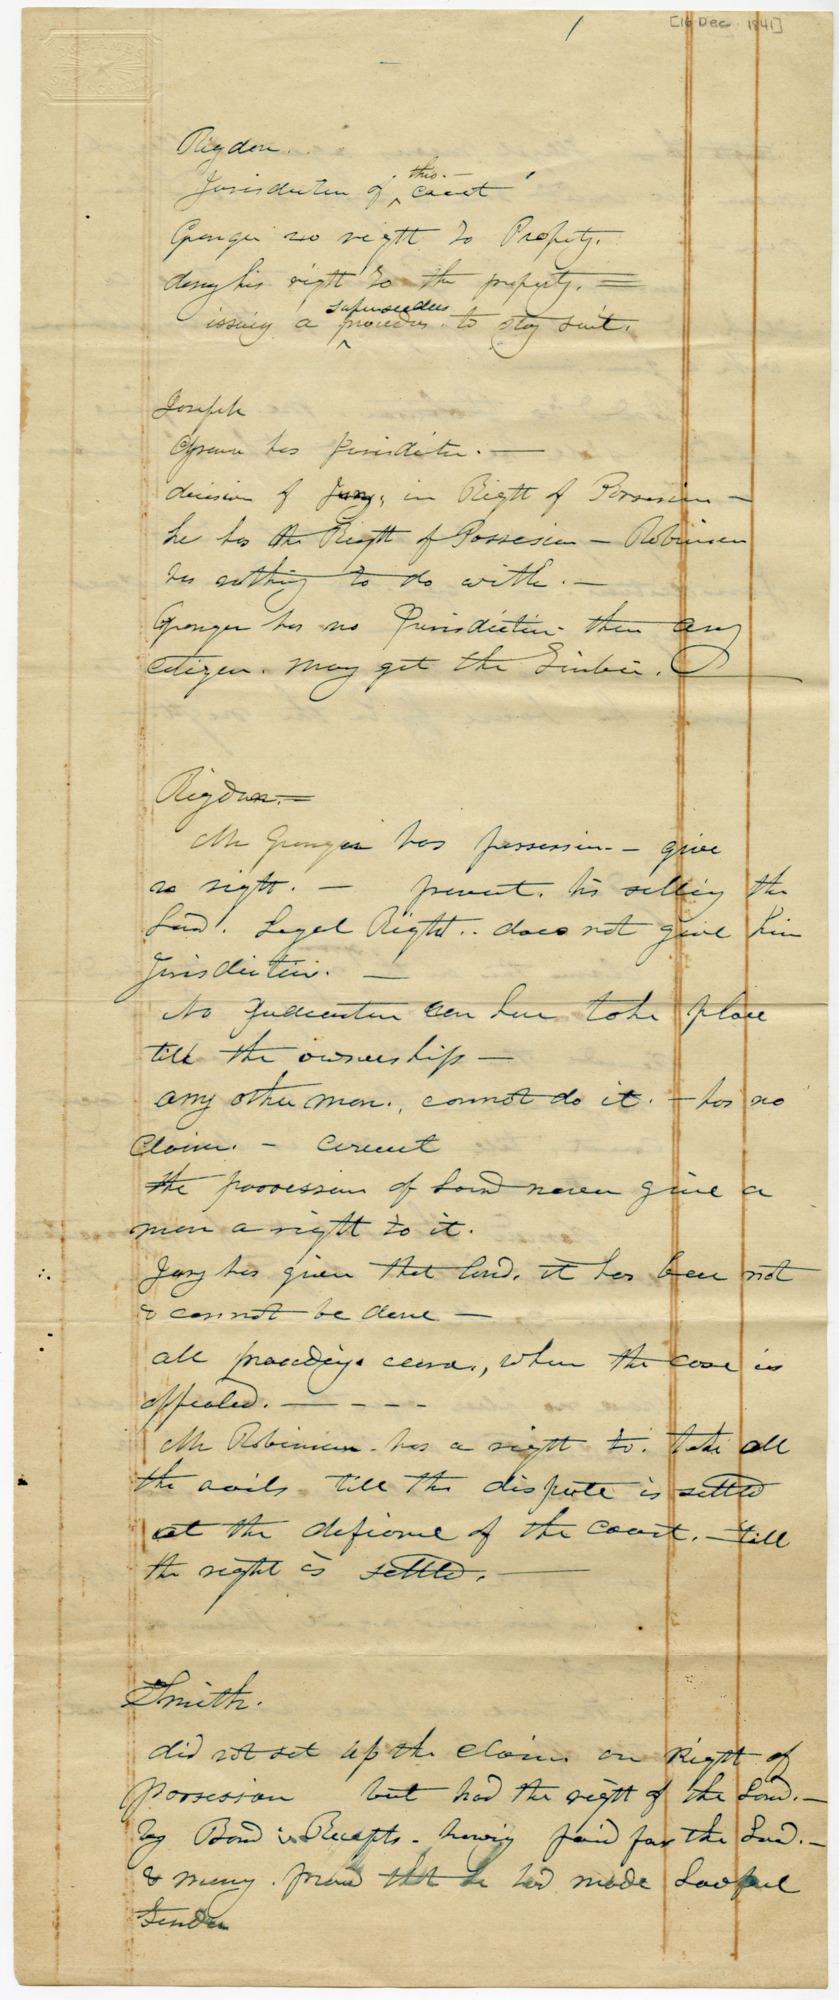 [16 Dec. 1841]
1
Rigdon.
Jurisdiction of this court
Granger no right to Property.
deny his right to the property. =
issuing a supersedeas procedus. to stay suit.
Joseph
Granger has Jurisdiction. —
decision of Jury, in Right of Possession —
he has the Right of Possession — Robinson
has nothing to do with. —
Granger has no Jurisdiction then any
citizen. may get the Timber.
Rigdon. =
Mr Granger has possession — give
no right. — prevent. his selling the
Land. Legal Right.. does not give him
Jurisdiction. —
No Judication can here take place
till the ownership —
any other man., cannot do it. — has no
Claim. — circuit
the possession of Land never give a
man a right to it.
Jury has given that land. it has been not
& cannot be done —
all proceedings cease, when the case is
appealed. — - - -
Mr Robinson. has a right to. take all
the avails till the dispute is settled
at the of the court. — till
the right is settled. —
Smith.
did not set up the claim on Right of
possession but had the right of the Land. —
by Bond & Receipts - having paid for the Land. —
& money. proved that he had made Lawful
Tender